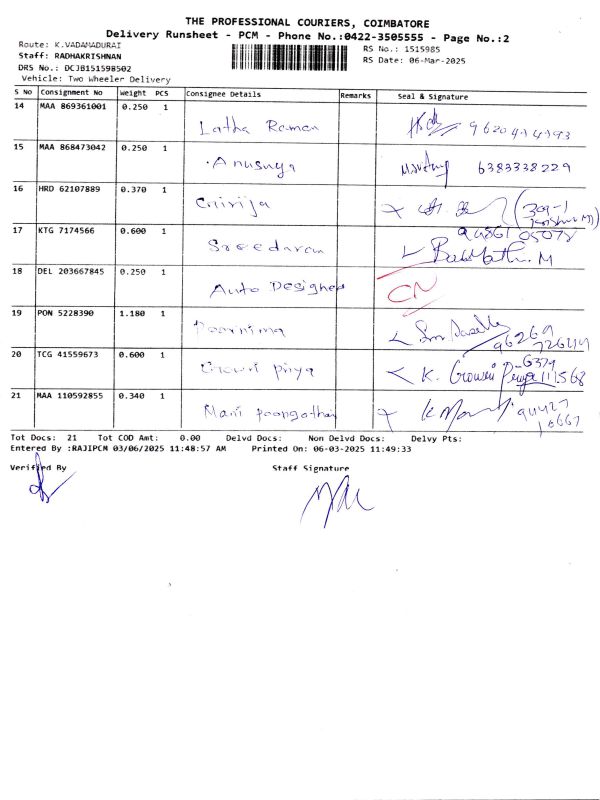 THE PROFESSIONAL COURIERS, COIMBATORE
Delivery Runsheet - PCM - Phone No.:0422-3505555 - Page No.:2
Route: K.VADAMADURAI
Staff: RADHAKRISHNAN
DRS No.: DCJB151598502
Vehicle: Two Wheeler Delivery
RS No.: 1515985
RS Date: 06-Mar-2025
S No Consignment No Weight PCS Consignee Details Remarks Seal & Signature
14 MAA 869361001 0.250 1 Latha Raman
15 MAA 868473042 0.250 1 Anusuya 6383338229
16 HRD 62107889 0.370 1 Girija
17 KTG 7174566 0.600 1 Sreedaran
18 DEL 203667845 0.250 1 Auto Designed CN
19 PON 5228390 1.180 1 Poornima 96269 72649
20 TCG 41559673 0.600 1 Gowri priya K. Gowri Priya
21 MAA 110592855 0.340 1 Mani poongothai
Tot Docs: 21 Tot COD Amt: 0.00 Delvd Docs: Non Delvd Docs: Delvy Pts:
Entered By :RAJIPCM 03/06/2025 11:48:57 AM Printed On: 06-03-2025 11:49:33
Verified By Staff Signature